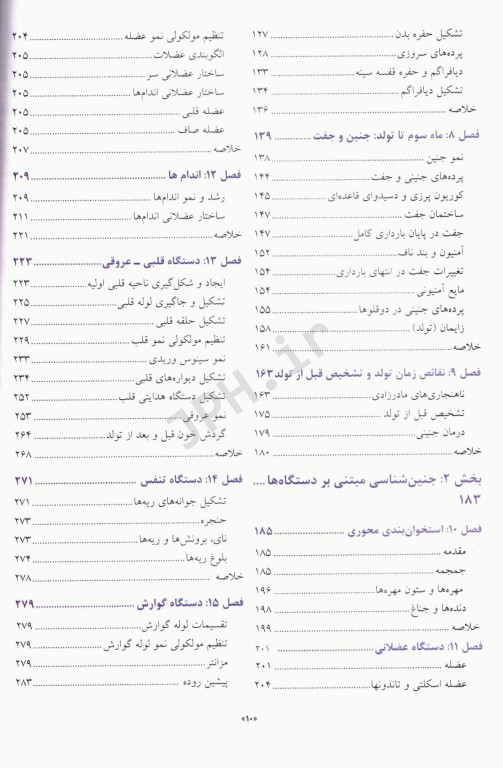 تشکیل حفره بدن ........ ۱۲۷
پرده‌های سروزی ........ ۱۲۸
دیافراگم و حفره قفسه سینه ........ ۱۳۳
تشکیل دیافراگم ........ ۱۳۴
خلاصه ........ ۱۳۶
فصل ۸: ماه سوم تا تولد: جنین و جفت ........ ۱۳۹
نمو جنین ........ ۱۳۸
پرده‌های جنینی و جفت ........ ۱۴۴
کوریون پرزی و دسیدوای قاعده‌ای ........ ۱۴۵
ساختمان جفت ........ ۱۴۷
جفت در پایان بارداری کامل ........ ۱۴۷
آمنیون و بند ناف ........ ۱۵۲
تغییرات جفت در انتهای بارداری ........ ۱۵۴
مایع آمنیونی ........ ۱۵۴
پرده‌های جنینی در دوقلوها ........ ۱۵۵
زایمان (تولد) ........ ۱۵۸
خلاصه ........ ۱۶۱
فصل ۹: نقائص زمان تولد و تشخیص قبل از تولد ۱۶۳
ناهنجاری‌های مادرزادی ........ ۱۶۳
تشخیص قبل از تولد ........ ۱۷۵
درمان جنینی ........ ۱۷۹
خلاصه ........ ۱۸۰
بخش ۲: جنین‌شناسی مبتنی بر دستگاه‌ها ....
۱۸۳
فصل ۱۰: استخوان‌بندی محوری ........ ۱۸۵
مقدمه ........ ۱۸۵
جمجمه ........ ۱۸۵
مهره‌ها و ستون مهره‌ها ........ ۱۹۶
دنده‌ها و جناغ ........ ۱۹۸
خلاصه ........ ۱۹۹
فصل ۱۱: دستگاه عضلانی ........ ۲۰۱
عضله ........ ۲۰۱
عضله اسکلتی و تاندونها ........ ۲۰۴
تنظیم مولکولی نمو عضله ........ ۲۰۴
الگوبندی عضلات ........ ۲۰۵
ساختار عضلانی سر ........ ۲۰۵
ساختار عضلانی اندام‌ها ........ ۲۰۵
عضله قلبی ........ ۲۰۵
عضله صاف ........ ۲۰۵
خلاصه ........ ۲۰۷
فصل ۱۲: اندام ها ........ ۲۰۹
رشد و نمو اندام‌ها ........ ۲۰۹
ساختار عضلانی اندام‌ها ........ ۲۱۱
خلاصه ........ ۲۲۱
فصل ۱۳: دستگاه قلبی – عروقی ........ ۲۲۳
ایجاد و شکل‌گیری ناحیه قلبی اولیه ........ ۲۲۳
تشکیل و جاگیری لوله قلبی ........ ۲۲۵
تشکیل حلقه قلبی ........ ۲۲۷
تنظیم مولکولی نمو قلب ........ ۲۲۹
نمو سینوس وریدی ........ ۲۳۳
تشکیل دیواره‌های قلبی ........ ۲۳۴
تشکیل دستگاه هدایتی قلب ........ ۲۵۲
نمو عروقی ........ ۲۵۳
گردش خون قبل و بعد از تولد ........ ۲۶۴
خلاصه ........ ۲۶۸
فصل ۱۴: دستگاه تنفس ........ ۲۷۱
تشکیل جوانه‌های ریه‌ها ........ ۲۷۱
حنجره ........ ۲۷۳
نای، برونش‌ها و ریه‌ها ........ ۲۷۳
بلوغ ریه‌ها ........ ۲۷۴
خلاصه ........ ۲۷۸
فصل ۱۵: دستگاه گوارش ........ ۲۷۹
تقسیمات لوله گوارش ........ ۲۷۹
تنظیم مولکولی نمو لوله گوارش ........ ۲۷۹
مزانتر ........ ۲۷۹
پیشین روده ........ ۲۸۳
«۱۰»
JpH.ir